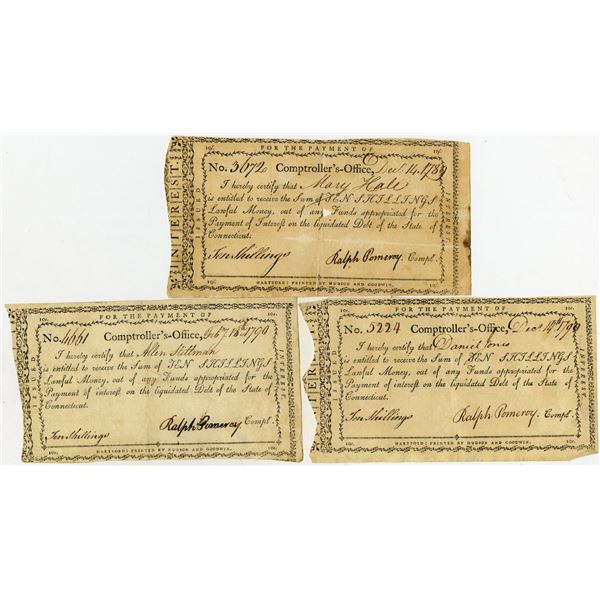 10s. FOR THE PAYMENT OF 10s.
INTEREST.
ISSUED
No. 3672 Comptroller's-Office, Dec. 14. 1789
I hereby certify that Mary Hale
is entitled to receive the Sum of TEN SHILLINGS
Lawful Money, out of any Funds appropriated for the
Payment of Interest on the liquidated Debt of the State of
Connecticut.
Ten Shillings Ralph Pomeroy, Compt.
10s. HARTFORD: PRINTED BY HUDSON AND GOODWIN. 10s.
10s. FOR THE PAYMENT OF 10s.
ISSUED
INTEREST.
No. 4661 Comptroller's-Office, Feb. 18th 1790
I hereby certify that Allen Stittman
is entitled to receive the Sum of TEN SHILLINGS
Lawful Money, out of any Funds appropriated for the
Payment of interest on the liquidated Debt of the State of
Connecticut.
Ten Shillings Ralph Pomeroy, Compt.
10s. HARTFORD: PRINTED BY HUDSON AND GOODWIN. 10s.
10s. FOR THE PAYMENT OF 10s.
ISSUED
INTEREST.
No. 5224 Comptroller's-Office, Decr 4th 1790
I hereby certify that Daniel Jones
is entitled to receive the Sum of TEN SHILLINGS
Lawful Money, out of any Funds appropriated for the
Payment of interest on the liquidated Debt of the State of
Connecticut.
Ten Shillings Ralph Pomeroy, Compt.
10s. HARTFORD: PRINTED BY HUDSON AND GOODWIN. 10s.